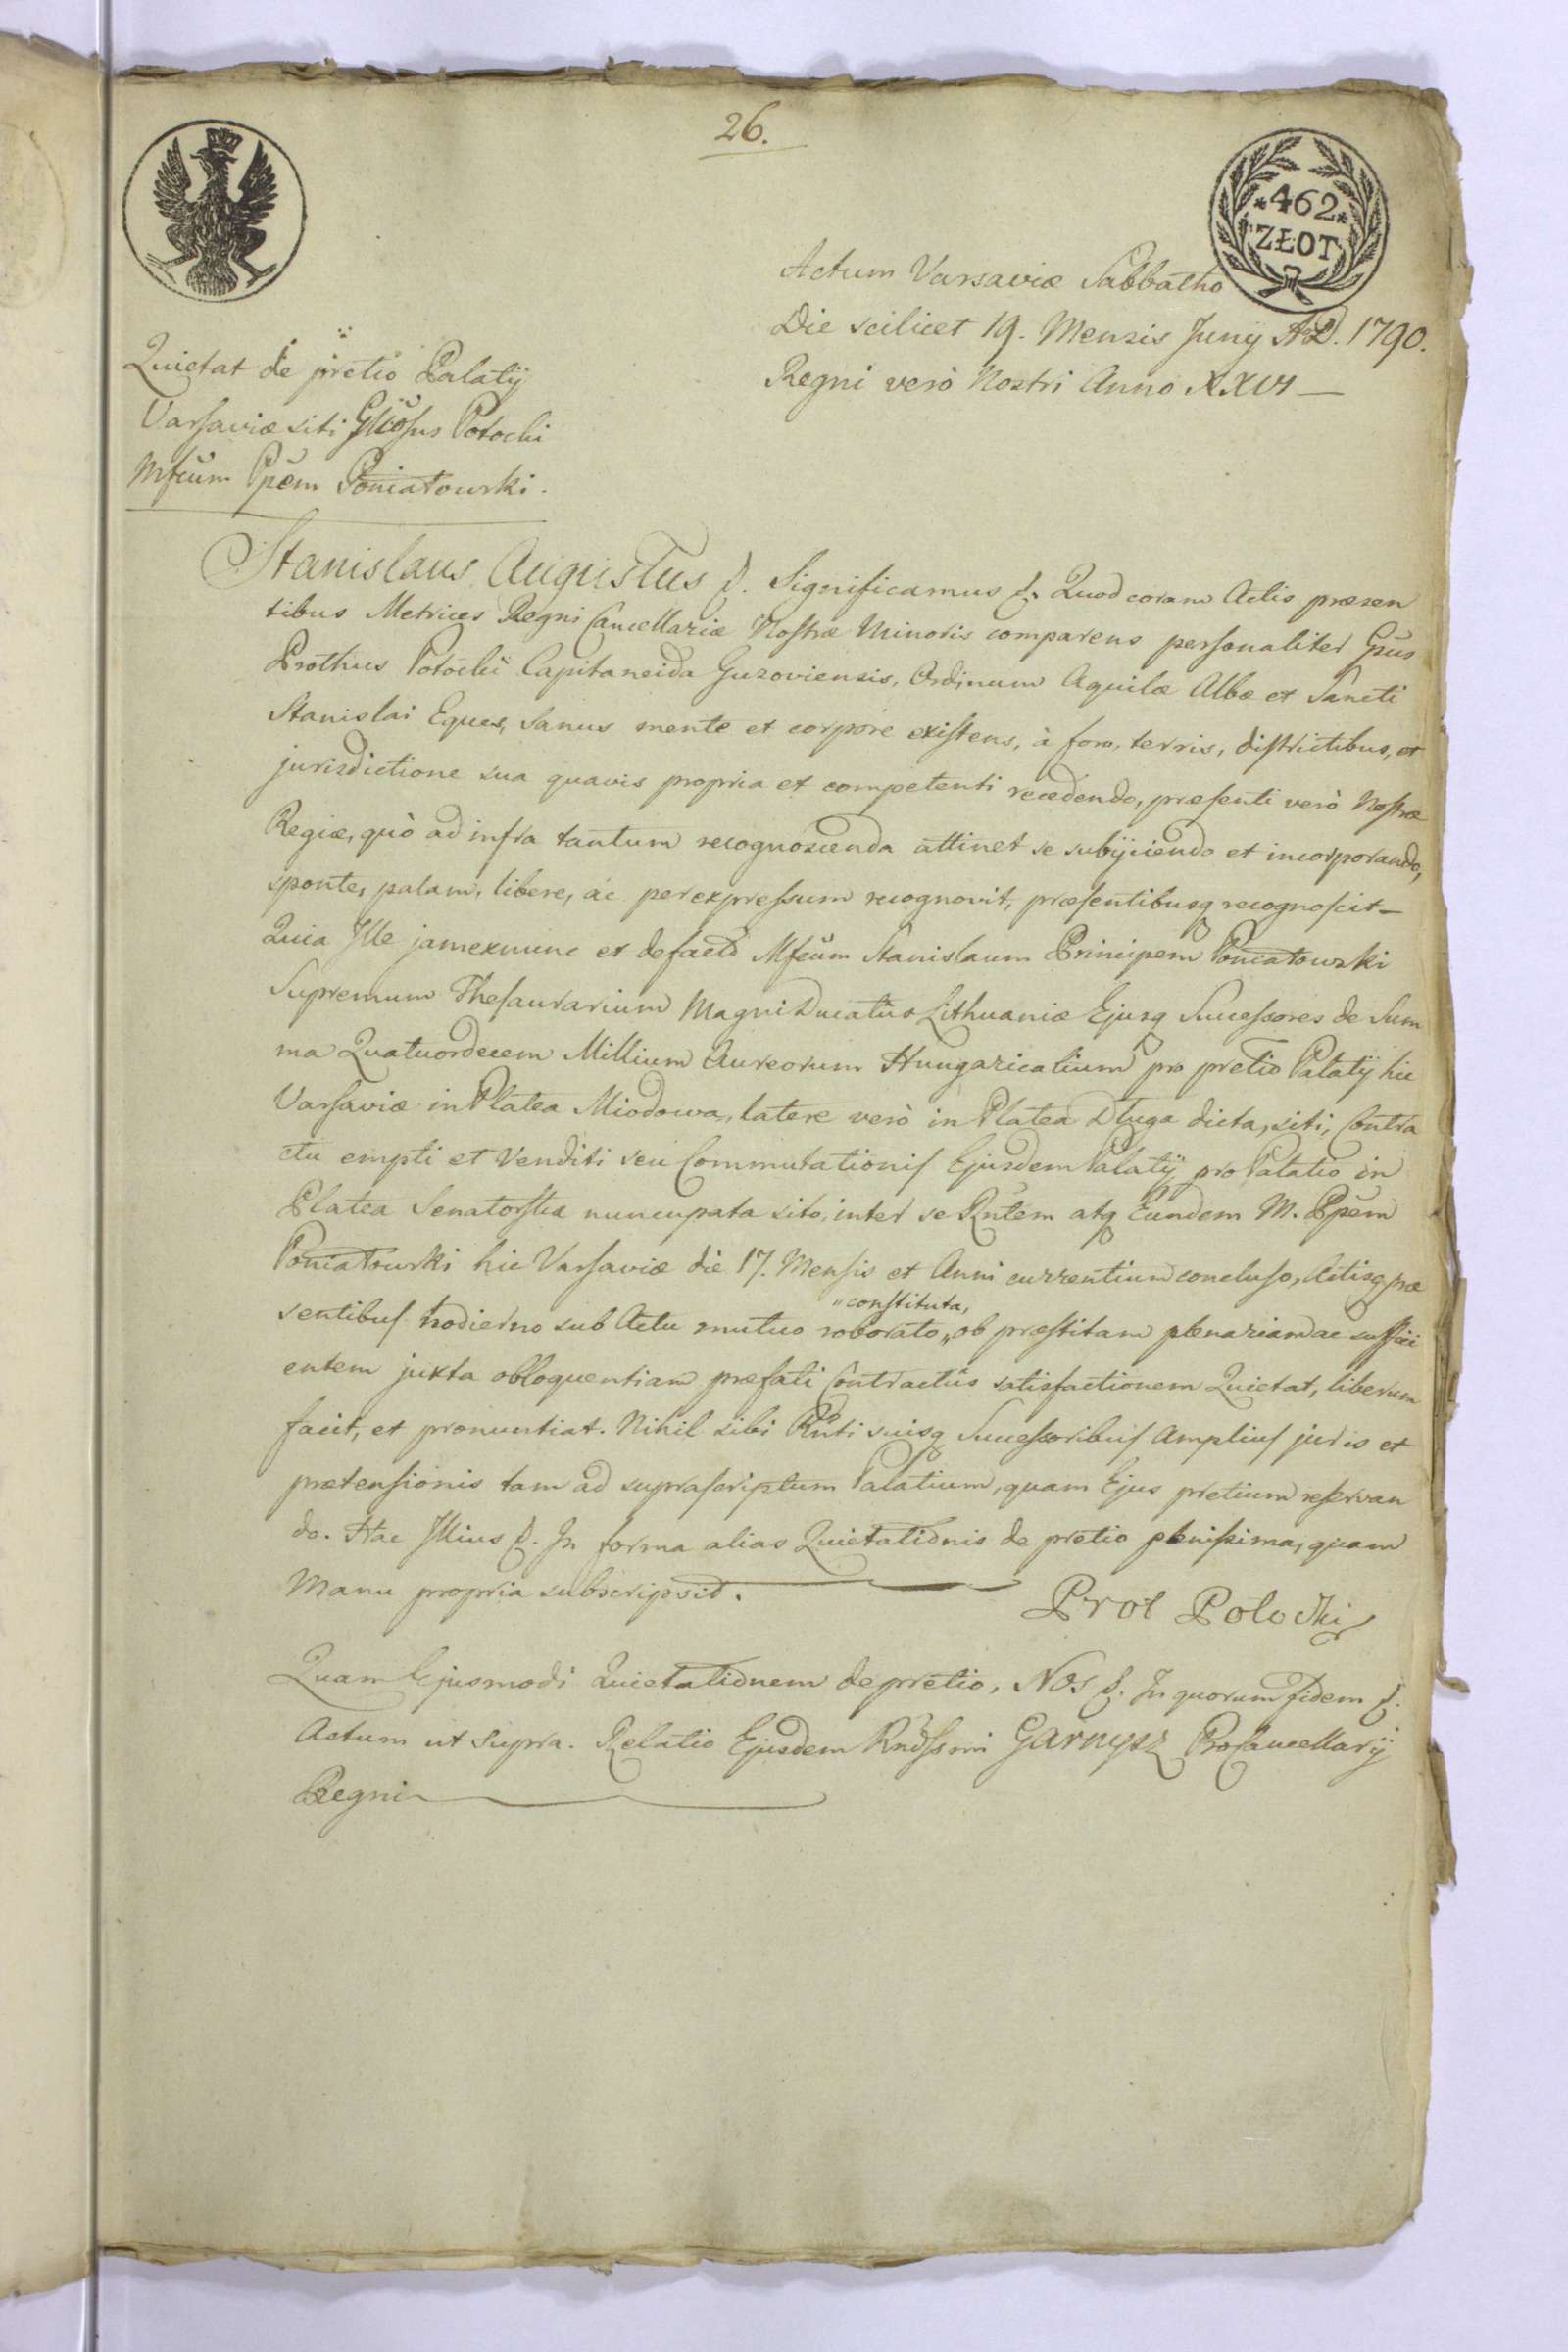 26.
*462*
ZŁOT
Actum Varsaviæ Sabbatho
Die scilicet 19. Mensis Junÿ A.D. 1790.
Regni verò Nostri Anno XXVI
Quietat de pretio Palatÿ
Varsaviæ siti Potocki
Mfcum Ppem Poniatowski.
Stanislaus Augustus &. Significamus &. Quod coram Actis præsen
tibus Metrices Regni Cancellariæ Nostræ Minoris comparens personaliter Gsus
Prothus Potocki Capitaneida Guzoviensis, Ordinum Aquilæ Albæ et Sancti
Stanislai Eques, sanus mente et corpore existens, à foro, terris, districtibus, et
jurisdictione sua quavis propria et competenti recedendo, præsenti verò Nostræ
Regiæ, quò ad infra tantum recognoscenda attinet se subÿciendo et incorporando,
sponte, palam, libere, ac per expressum recognovit, præsentibusq recognoscit
Quia Ille jam ex nunc et de facto Mfcum Stanislaum Principem Poniatowski
Supremum Thesaurarium Magni Ducatûs Lithuaniæ Ejusq Successores de Sum
ma Quatuordecem Millium Aureorum Hungaricalium pro pretio Palatÿ hic
Varsaviæ in Platea Miodowa, latere verò in Platea Długa dicta, siti, Contra
ctu empti et Venditi seu Commutationis Ejusdem Palatÿ pro Palatio in
Platea Senatorska nuncupata sito, inter se Rntem atq Eundem M. Ppem
Poniatowski hic Varsaviæ die 17. Mensis et Anni currentium concluso, Actisq præ
"constituta,
sentibus hodierno sub Actu mutuo roborato "ob præstitam plenariam ac suffici
entem juxta obloquentiam præfati Contractûs satisfactionem Quietat, liberum
facit, et pronuntiat. Nihil sibi Rnti suisq Successoribus Amplius juris et
prætensionis tam ad suprascriptum Palatium, quam Ejus pretium reservan
do. Hac Illius &. In forma alias Quietationis de pretio plenissima, quam
Manu propria subscripsit.
Prot Potocki
Quam Ejusmodi Quietationem de pretio, Nos &. In quorum fidem &.
Actum ut supra. Relatio Ejusdem Rndssmi Garnysz ProCancellarÿ
Regni